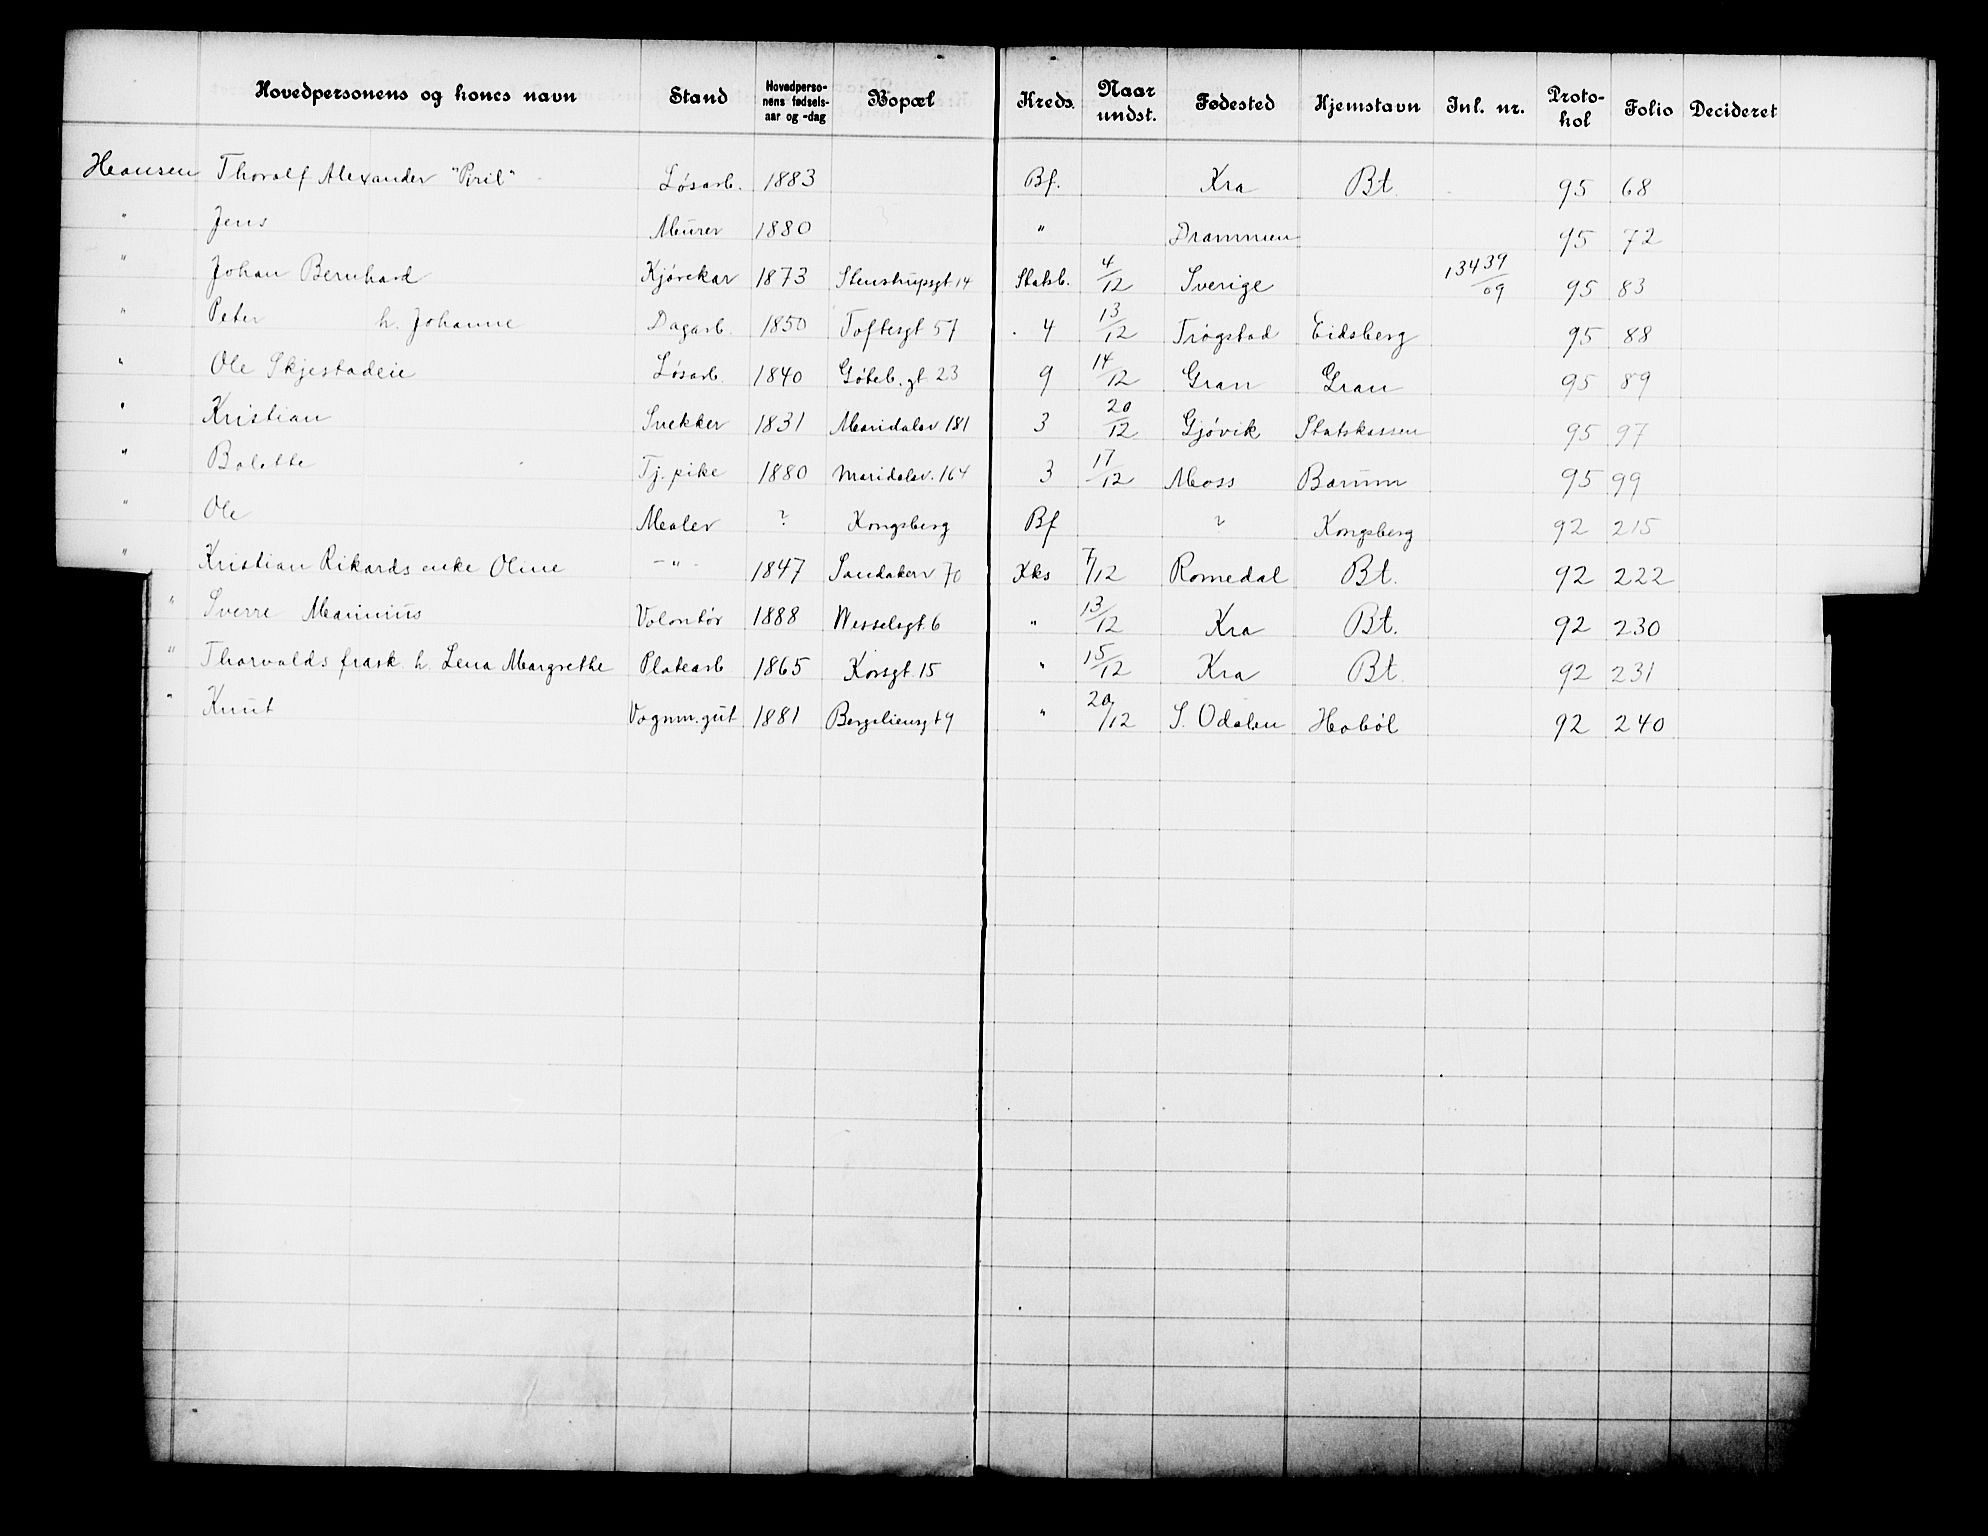 Hovedpersonens og kones navn Stand Hovedperso-nens fødsels-aar og -dag Bopæl Kreds. Naar undst. Fødested Hjemstavn Inl. nr. Proto-kol Folio Decideret
Hansen Thoralf Alexander "Piril" Løsarb. 1883 Bf. Kra Bt. 95 68
" Jens Murer 1880 " Drammen 95 72
" Johan Bernhard Kjørekar 1873 Stenstrupsgt 14 Statsb. 4/12 Sverige 13439/09 95 83
" Peter h. Johanne Dagarb. 1850 Toftesgt 57 4 13/12 Trøgstad Eidsberg 95 88
" Ole Skjestadeie Løsarb. 1840 Gøteb. gt 23 9 14/12 Gran Gran 95 89
" Kristian Snekker 1831 Maridalsv 181 3 20/12 Gjøvik Statskassen 95 97
" Bolette Tj. pike 1880 Maridalsv. 164 3 17/12 Moss Bærum 95 99
" Ole Maler ? Kongsberg Bf ? Kongsberg 92 215
" Kristian Rikards enke Oline — " — 1847 Sandakerv 70 Kks 7/12 Romedal Bt. 92 222
" Sverre Marinius Volontør 1888 Wesselsgt 6 " 13/12 Kra Bt. 92 230
" Thorvalds frask. h. Lena Margrethe Platearb 1865 Korsgt. 15 " 15/12 Kra Bt. 92 231
" Knut Vognm. gut 1881 Bergsliensgt 9 " 20/12 S. Odalen Hobøl 92 240